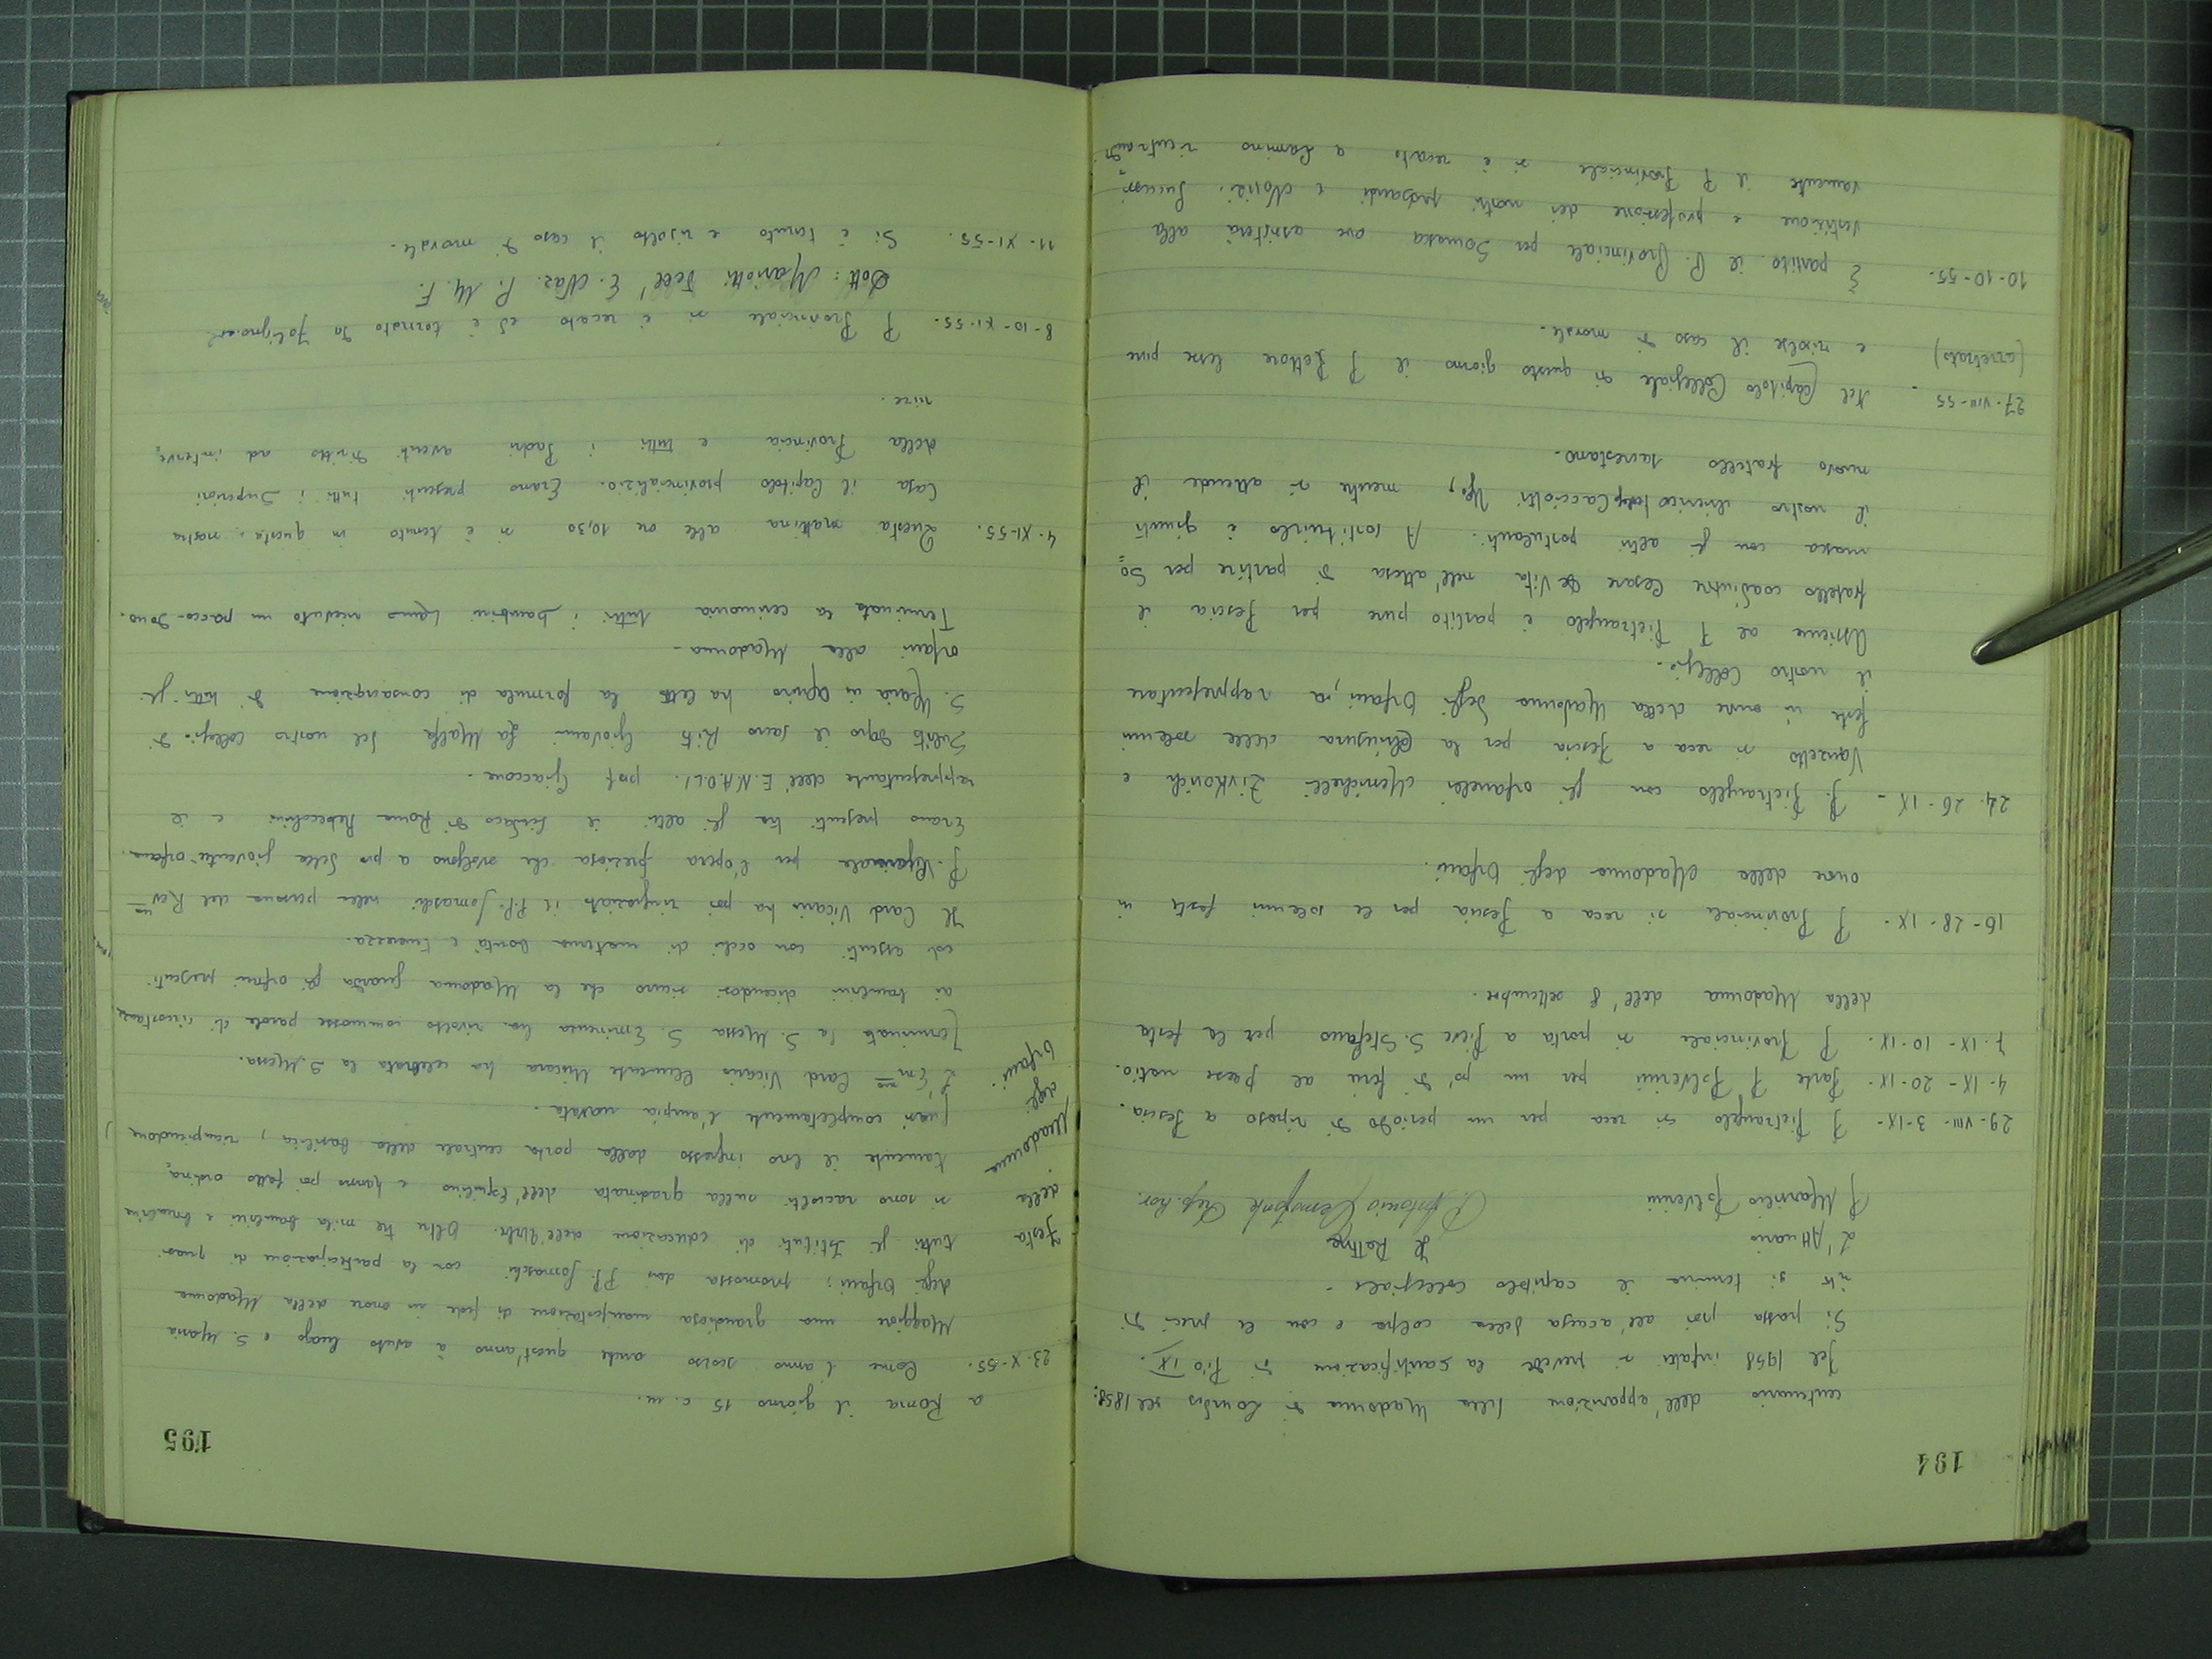 194
centenario dell'apparizione della Madonna di Lourdes nel 1858:
Nel 1958 infatti si prevede la santificazione di Pio IX.
Si passa poi all'accusa della colpa e con le preci di
rito si termina il capitolo collegiale.
L'Attuario Il Rettore
P. Marsilio Polverini P. Antonio
29-VIII-3-IX- P. Pietrangelo si reca per un periodo di riposo a Pescia.
4-IX-20-IX- Parte P. Polverini per un po' di ferie al paese natio.
7-IX-10-IX- P. Provinciale si porta a Pieve S. Stefano per la festa
della Madonna dell'8 settembre.
16-28-IX- P. Provinciale si reca a Pescia per le solenni feste in
onore della Madonna degli Orfani.
24-26-IX- P. Pietrangelo con gli orfanelli Menichelli Zivkovich e
Vanzetto si reca a Pescia per la chiusura delle solenni
feste in onore della Madonna degli Orfani, a rappresentare
il nostro Collegio.
Assieme al P. Pietrangelo è partito pure per Pescia il
fratello coadiutore Cesare De Vita nell'attesa di partire per So=
masca con gli altri postulanti. A sostituirlo è giunto
il nostro chierico Cacciotti, mentre si attende il
nuovo fratello sacrestano.
27-VIII-55 Nel Capitolo Collegiale di questo giorno il P. Rettore lesse pure
(arretrato) e risolse il caso di morale.
10-10-55. È partito il P. Provinciale per Somasca ove assisterà alla
vestizione e professione dei nostri probandi e Novizi. Successi=
vamente il P. Provinciale si è recato a Camino rientrando
195
a Roma il giorno 15 c. m.
23-X-55. Come l'anno scorso anche quest'anno à avuto luogo a S. Maria
Maggiore una grandiosa manifestazione di fede in onore della Madonna
degli Orfani, promossa dai PP. Somaschi con la partecipazione di quasi
Festa della Madonna degli Orfani.
tutti gli Istituti di educazione dell'Urbe. Oltre tre mila bambini e bambine
si sono raccolti sulla gradinata dell'Esquilino e hanno poi fatto ordina=
tamente il loro ingresso dalla porta centrale della basilica, riempiendone
quasi completamente l'ampia navata.
L'Em.mo Card. Vicario Clemente Micara ha celebrato la S. Messa.
Terminata la S. Messa S. Eminenza ha rivolto commosse parole di circostanza
ai bambini dicendosi sicuro che la Madonna guarda gli orfani presenti
ed assenti con occhi di materna bontà e tenerezza.
Il Card. Vicario ha poi ringraziato i P.P. Somaschi nella persona del Rev.mo
P. Provinciale per l'opera preziosa che svolgono a pro della gioventù orfana.
Erano presenti tra gli altri il Sindaco di Roma Rebecchini e il
rappresentante dell'E.N.A.O.L.I. prof. Giaccone.
Subito dopo il sacro Rito Giovanni La Malfa del nostro collegio di
S. Maria in Aquiro ha letto la formula di consacrazione di tutti gli
orfani alla Madonna.
Terminata la cerimonia tutti i bambini hanno ricevuto un pacco-dono.
4-XI-55. Questa mattina alle ore 10,30 si è tenuto in questa nostra
Casa il Capitolo provincializio. Erano presenti tutti i Superiori
della Provincia e tutti i Padri aventi diritto ad interve=
nire.
8-10-XI-55. P. Provinciale si è recato ed è tornato da Foligno col
Dott: Mariotti dell'E. Naz. P. M. F.
11-XI-55. Si è tenuto e risolto il caso di morale.